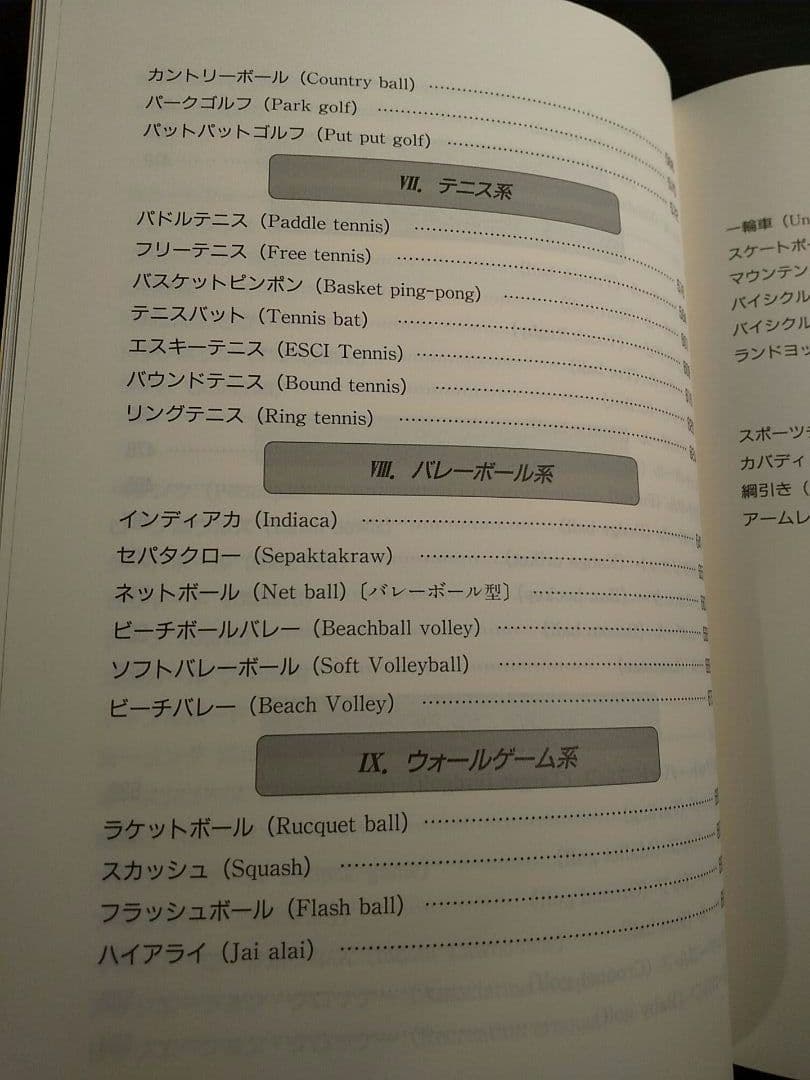 カントリーボール（Country ball）
パークゴルフ（Park golf）
パットパットゴルフ（Put put golf）
Ⅶ．テニス系
パドルテニス（Paddle tennis）
フリーテニス（Free tennis）
バスケットピンポン（Basket ping-pong）
テニスバット（Tennis bat）
エスキーテニス（ESCI Tennis）
バウンドテニス（Bound tennis）
リングテニス（Ring tennis）
Ⅷ．バレーボール系
インディアカ（Indiaca）
セパタクロー（Sepaktakraw）
ネットボール（Net ball）〔バレーボール型〕
ビーチボールバレー（Beachball volley）
ソフトバレーボール（Soft Volleyball）
ビーチバレー（Beach Volley）
Ⅸ．ウォールゲーム系
ラケットボール（Rucquet ball）
スカッシュ（Squash）
フラッシュボール（Flash ball）
ハイアライ（Jai alai）
一輪車（Un
スケートボ
マウンテン
バイシクル
バイシクル
ランドヨッ
スポーツ
カバディ
綱引き（
アームレ